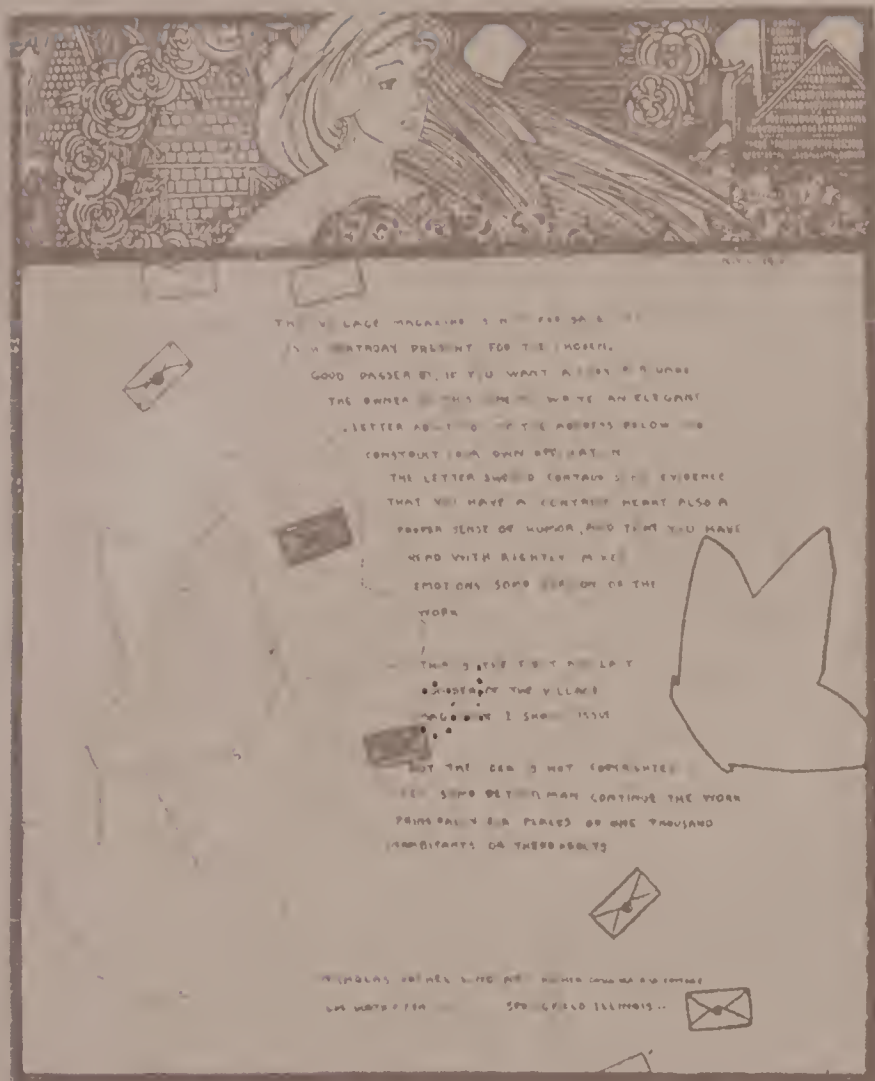 THE VILLAGE MAGAZINE IS NOT FOR SALE
IS A BIRTHDAY PRESENT FOR THE CHOSEN.
GOOD PASSER BY, IF YOU WANT A
THE OWNER OF THIS ONE WRITE AN ELEGANT
LETTER ABOUT THE ADDRESS BELOW AND
CONSTRUCT YOUR OWN APPLICATION
THE LETTER SHOULD CONTAIN SOME EVIDENCE
THAT YOU HAVE A CONTRITE HEART ALSO A
PROPER SENSE OF HUMOR, AND THAT YOU HAVE
READ WITH RIGHTLY MIXED
EMOTIONS SOME PORTION OF THE
WORK
THIS IS THE FIRST AND LAST
NUMBER OF THE VILLAGE
MAGAZINE I SHALL ISSUE
BUT THE IDEA IS NOT COPYRIGHTED
LET SOME BETTER MAN CONTINUE THE WORK
PRINCIPALLY FOR PLACES OF ONE THOUSAND
INHABITANTS OR THEREABOUTS
NICHOLAS VACHEL LINDSAY
SPRINGFIELD ILLINOIS..